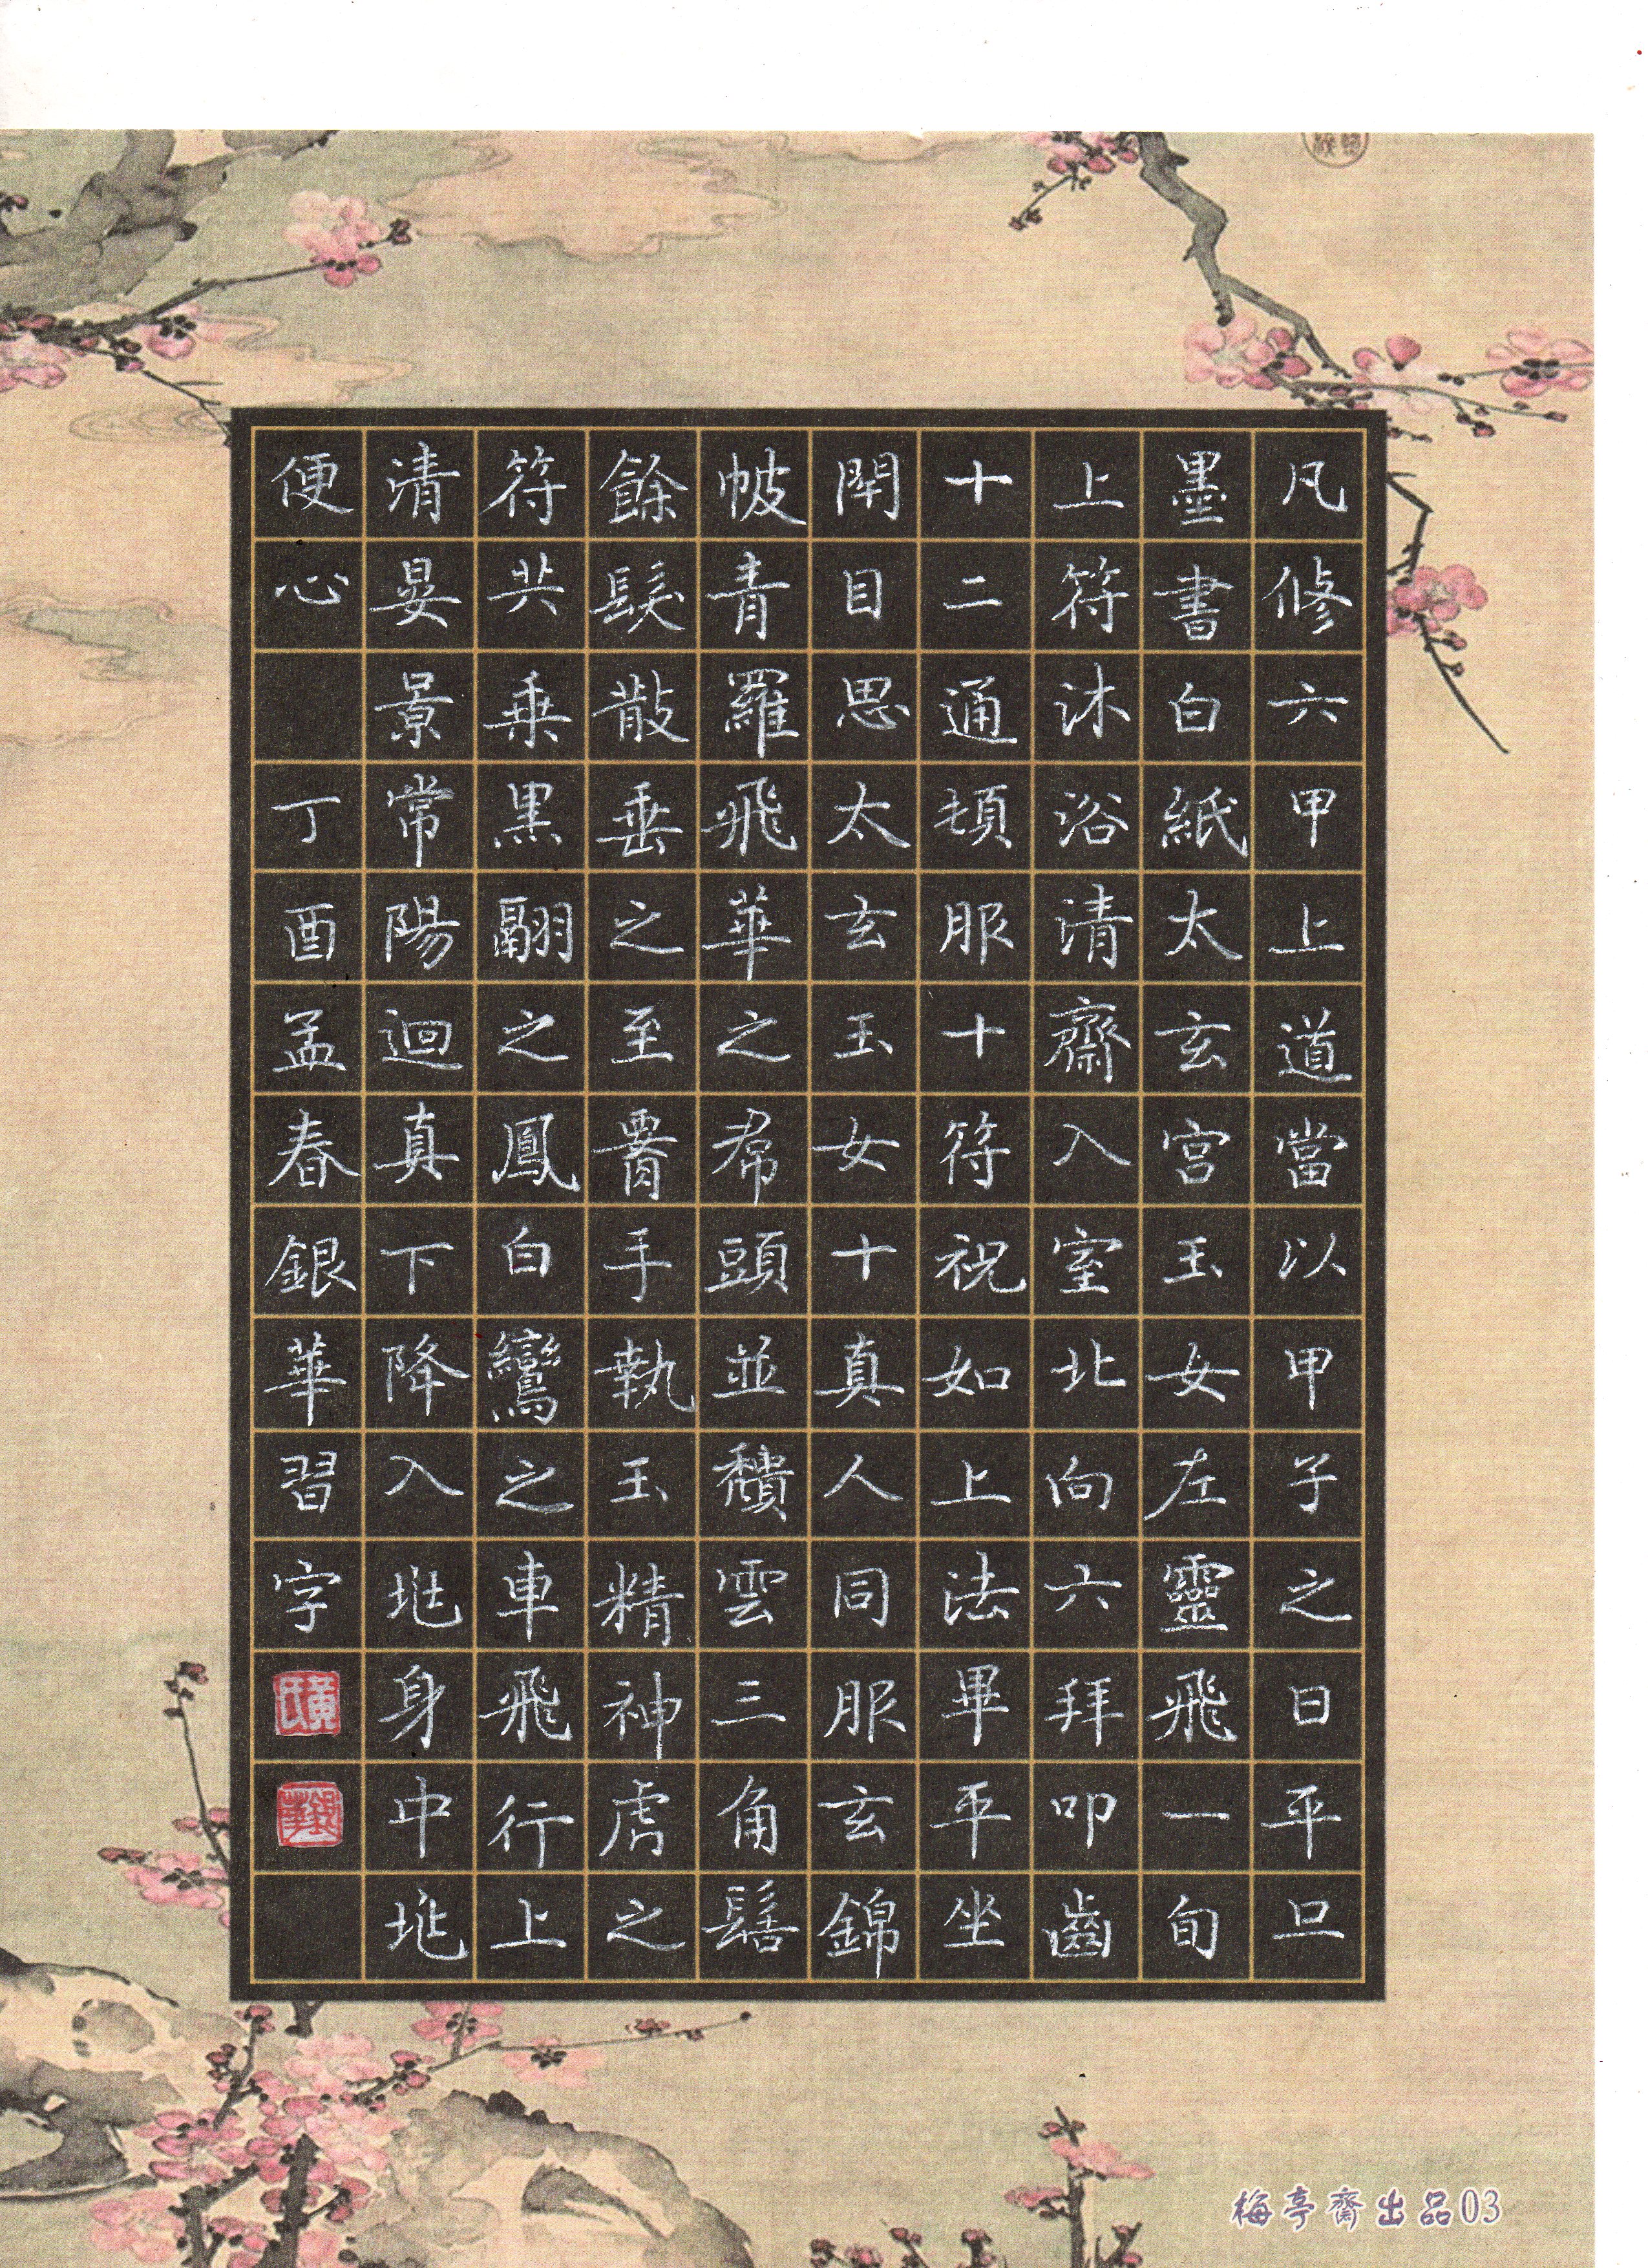 凡修六甲上道當以甲子之日平旦
墨書白紙太玄宮玉女左靈飛一旬
上符沐浴清齋入室北向六拜叩齒
十二通頓服十符祝如上法畢平坐
閇目思太玄玉女十真人同服玄錦
帔青羅飛華之帬頭並頹雲三角髻
餘髮散垂之至腰手執玉精神虎之
符共乗黑翮之鳳白鸞之車飛行上
清晏景常陽迴真下降入兆身中兆
便心 丁酉孟春銀華習字
銀華
梅亭齋出品03